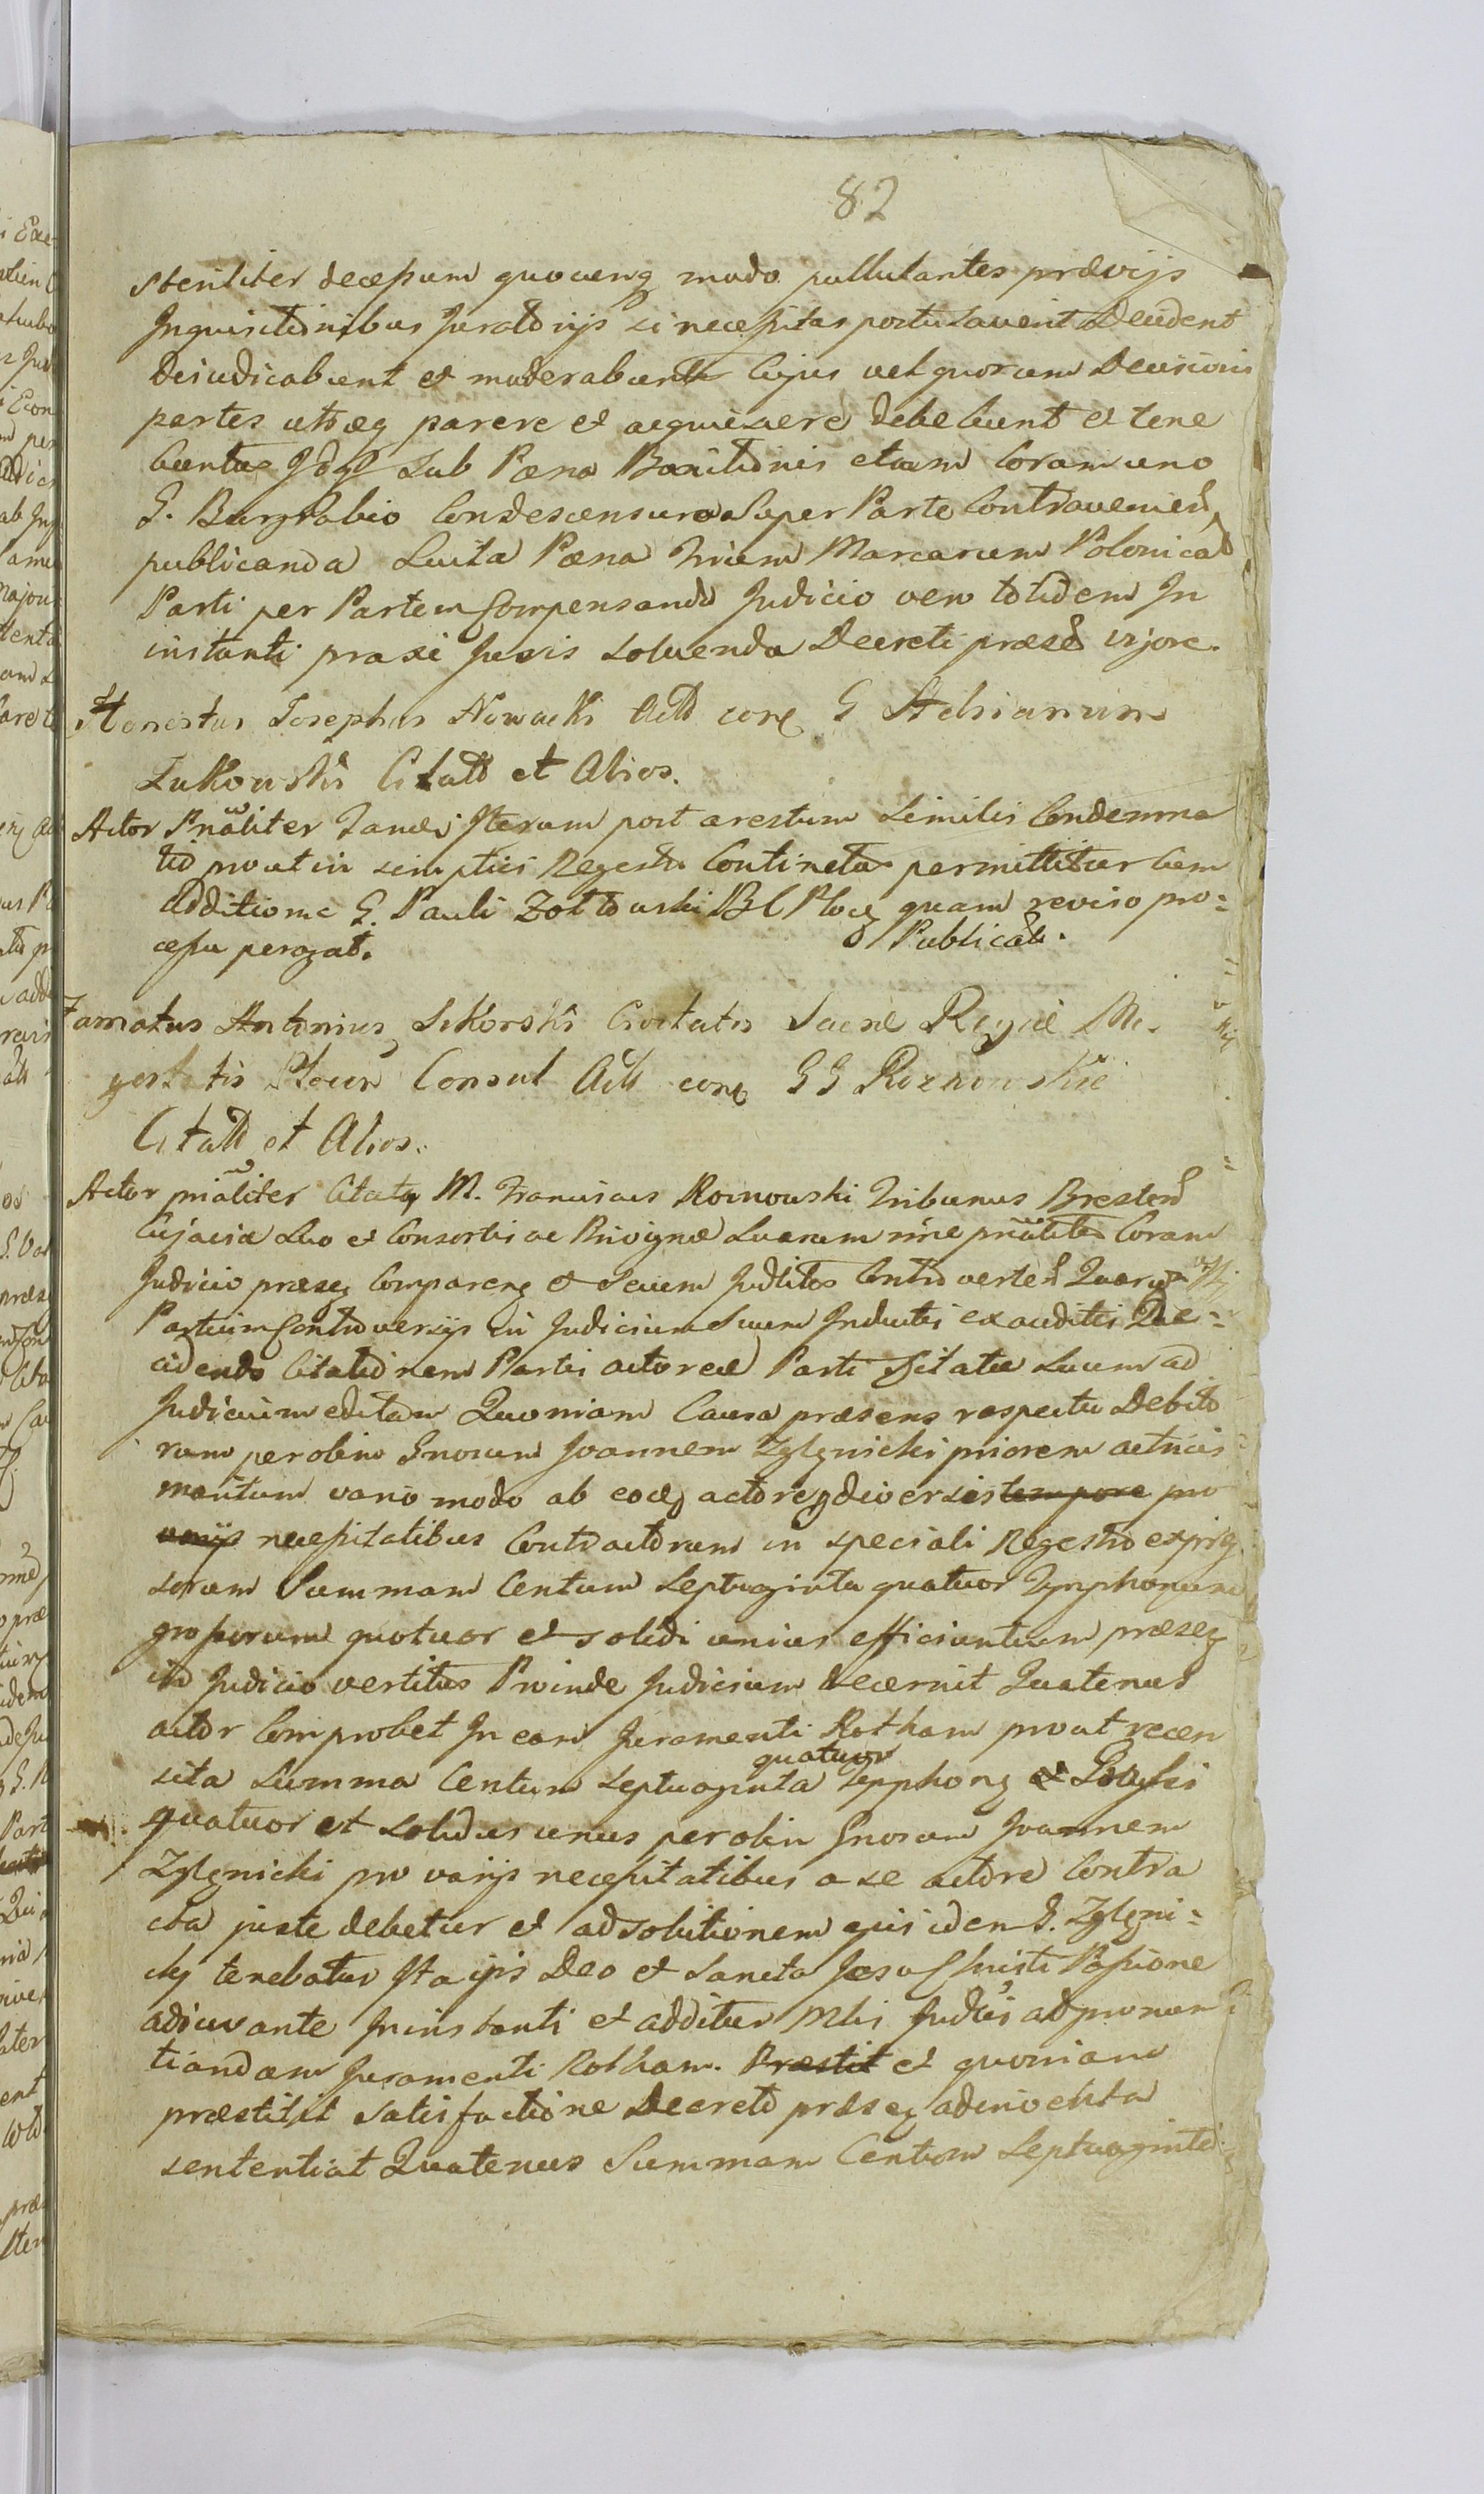 82
steriliter decessum quocunq modo pullulantes prævijs
Inquisitionibus Juratorijs si necessitas postulaverit Decident
deiudicabunt et moderabunt Cujus vel quorum Decisioni
partes utræq parere et acquiescere debebunt et tene
buntur Idq Sub Pæna Banitionis etiam Coram uno
G. Burgrabio Condescensuro Super Parte Contravenien
publicanda Luita Pæna Trium Marcarum Polonical
Parti per Partem Compensanda Judicio vero totidem In
instanti praxi Juris solvenda Decreti præsen vigore.
Honestus Josephus Nowacki Act cong G Adrianum
Lukowski Citatt et Alios.
Actor Pnaliter Tandej Iterum post arestum Similis Condemna
tio prout in simplici Regestro Continetur permittitur Cum
additione G. Pauli Zottowski BC Ploc quam reviso pro=
cessu peragat. Publicat.
Famatus Antonius Sikorski Civitatis Sacræ Regiæ Ma
jestatis Plocen Consul Act cong GG Roznowskie
Citatt et Alios.
Actor pnaliter Citatq M. Franciscus Roznowski Tribunus Bresten
Cujaviæ Suo et Consortis ac Privignæ Suarum nne pnaliter Coram
Judicio præseq Compareng et Secum Judtites Controverten Quarum
Partium Controversijs in Judicium Suum Inductis exauditis De=
cidendo Citationem Partis actoreæ Parti Citatæ Suum ad
Judicium editam Quoniam Causa præsens respectu Debito
rum per olim Gnosum Joannem Zglynicki priorem actricis
maritum vario modo ab eodeq actoreq diversis tempore pro
varijs necessitatibus Contractorum in speciali Regestro expres
sorum Summam Centum Septuaginta quatuor Tynphonum
grossorum quatuor et solidi unius efficientium præseq
in Judicio vertitur Proinde Judicium decernit Quatenus
actor Comprobet In eam Juramenti Rotham prout recen
sita Summa Centum Septuaginta quatuor Tepphong et Grossi
quatuor et Solidus unus per olim Gnosum Joannem
Zglynicki pro varijs necessitatibus a se actore Contra
cta juste debetur et ad solutionem ejus idem G. Zglyni=
cky tenebatur Ita ipsi Deo et Sancta Jesu Christi Passione
adiuvante In instanti et additur Mlis Judtis ad pronun
tiandam Juramenti Rotham. Præstit et quoniam
præstitit Satisfactione Decreto præseq adinventa
sententiat Quatenus Summam Centum Septuaginta